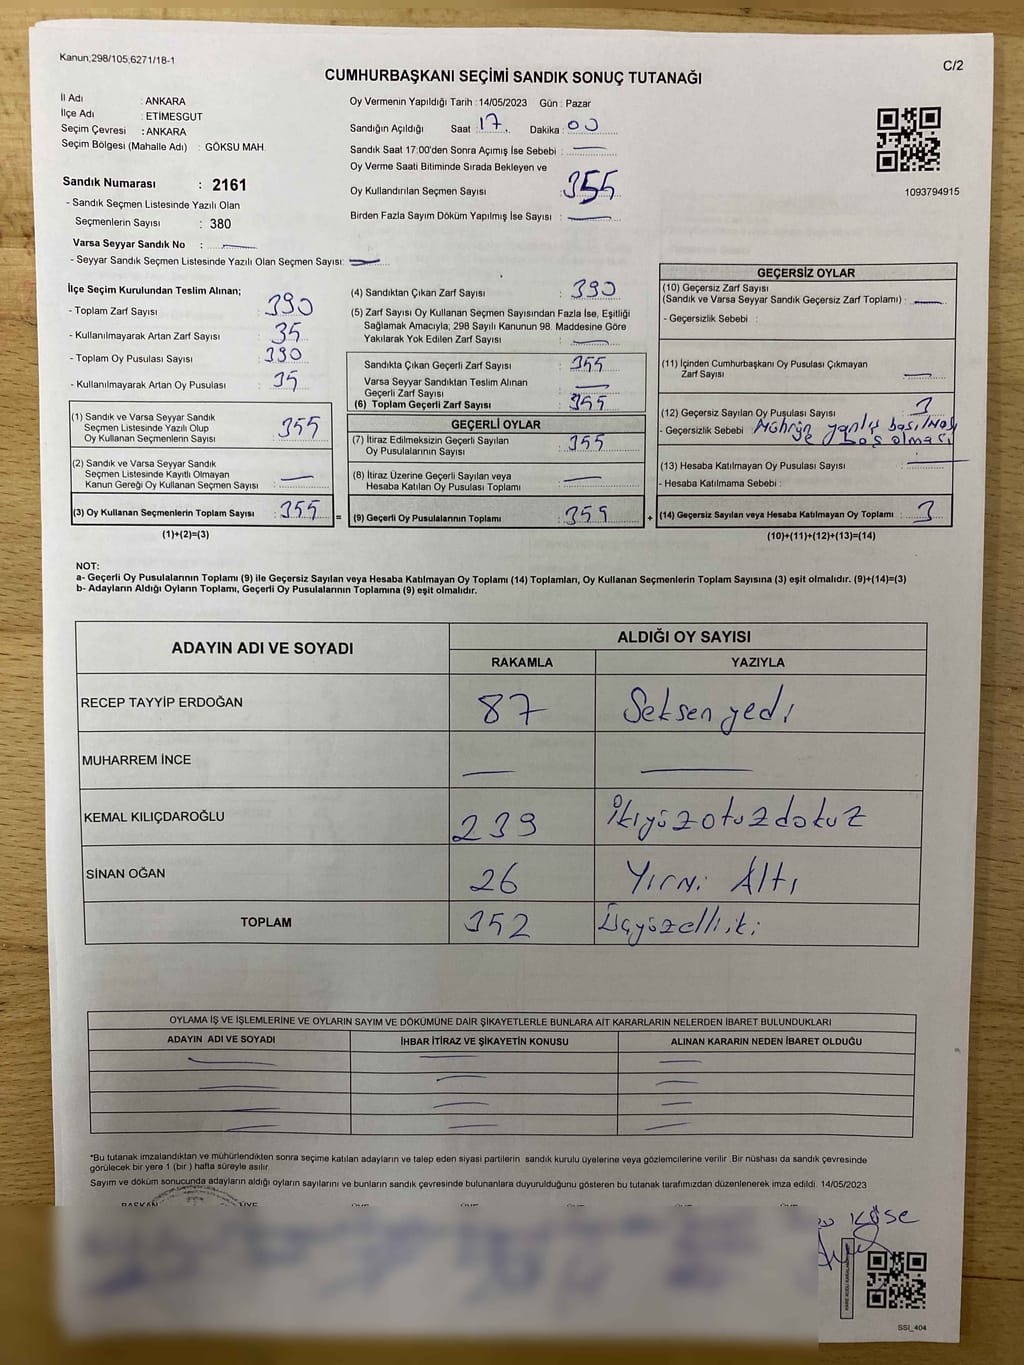 Kanun;298/105,6271/18-1
C/2
CUMHURBAŞKANI SEÇİMİ SANDIK SONUÇ TUTANAĞI
İl Adı : ANKARA
İlçe Adı : ETİMESGUT
Seçim Çevresi : ANKARA
Seçim Bölgesi (Mahalle Adı) : GÖKSU MAH.
Sandık Numarası : 2161
- Sandık Seçmen Listesinde Yazılı Olan
Seçmenlerin Sayısı : 380
Varsa Seyyar Sandık No :
- Seyyar Sandık Seçmen Listesinde Yazılı Olan Seçmen Sayısı:
Oy Vermenin Yapıldığı Tarih : 14/05/2023 Gün : Pazar
Sandığın Açıldığı Saat : 17. Dakika : 00
Sandık Saat 17:00'den Sonra Açımış İse Sebebi :
Oy Verme Saati Bitiminde Sırada Bekleyen ve
Oy Kullandırılan Seçmen Sayısı : 355
Birden Fazla Sayım Döküm Yapılmış İse Sayısı :
1093794915
İlçe Seçim Kurulundan Teslim Alınan;
- Toplam Zarf Sayısı : 390
- Kullanılmayarak Artan Zarf Sayısı : 35
- Toplam Oy Pusulası Sayısı : 390
- Kullanılmayarak Artan Oy Pusulası : 35
(1) Sandık ve Varsa Seyyar Sandık
Seçmen Listesinde Yazılı Olup
Oy Kullanan Seçmenlerin Sayısı : 355
(2) Sandık ve Varsa Seyyar Sandık
Seçmen Listesinde Kayıtlı Olmayan
Kanun Gereği Oy Kullanan Seçmen Sayısı :
(3) Oy Kullanan Seçmenlerin Toplam Sayısı : 355 =
(1)+(2)=(3)
(4) Sandıktan Çıkan Zarf Sayısı : 390
(5) Zarf Sayısı Oy Kullanan Seçmen Sayısından Fazla İse, Eşitliği
Sağlamak Amacıyla; 298 Sayılı Kanunun 98. Maddesine Göre
Yakılarak Yok Edilen Zarf Sayısı :
Sandıkta Çıkan Geçerli Zarf Sayısı : 355
Varsa Seyyar Sandıktan Teslim Alınan
Geçerli Zarf Sayısı :
(6) Toplam Geçerli Zarf Sayısı : 355
GEÇERLİ OYLAR
(7) İtiraz Edilmeksizin Geçerli Sayılan
Oy Pusulalarının Sayısı : 355
(8) İtiraz Üzerine Geçerli Sayılan veya
Hesaba Katılan Oy Pusulası Toplamı :
(9) Geçerli Oy Pusulalarının Toplamı : 355 +
GEÇERSİZ OYLAR
(10) Geçersiz Zarf Sayısı
(Sandık ve Varsa Seyyar Sandık Geçersiz Zarf Toplamı) :
- Geçersizlik Sebebi :
(11) İçinden Cumhurbaşkanı Oy Pusulası Çıkmayan
Zarf Sayısı :
(12) Geçersiz Sayılan Oy Pusulası Sayısı : 3
- Geçersizlik Sebebi : yanlış basılması
boş olması
(13) Hesaba Katılmayan Oy Pusulası Sayısı :
- Hesaba Katılmama Sebebi :
(14) Geçersiz Sayılan veya Hesaba Katılmayan Oy Toplamı : 3
(10)+(11)+(12)+(13)=(14)
NOT:
a- Geçerli Oy Pusulalarının Toplamı (9) ile Geçersiz Sayılan veya Hesaba Katılmayan Oy Toplamı (14) Toplamları, Oy Kullanan Seçmenlerin Toplam Sayısına (3) eşit olmalıdır. (9)+(14)=(3)
b- Adayların Aldığı Oyların Toplamı, Geçerli Oy Pusulalarının Toplamına (9) eşit olmalıdır.
ADAYIN ADI VE SOYADI ALDIĞI OY SAYISI
RAKAMLA YAZIYLA
RECEP TAYYİP ERDOĞAN 87 Seksen yedi
MUHARREM İNCE
KEMAL KILIÇDAROĞLU 239 İkiyüzotuzdokuz
SİNAN OĞAN 26 Yirmi Altı
TOPLAM 352 Üçyüzelliiki
OYLAMA İŞ VE İŞLEMLERİNE VE OYLARIN SAYIM VE DÖKÜMÜNE DAİR ŞİKAYETLERLE BUNLARA AİT KARARLARIN NELERDEN İBARET BULUNDUKLARI
ADAYIN ADI VE SOYADI İHBAR İTİRAZ VE ŞİKAYETİN KONUSU ALINAN KARARIN NEDEN İBARET OLDUĞU
*Bu tutanak imzalandıktan ve mühürlendikten sonra seçime katılan adayların ve talep eden siyasi partilerin sandık kurulu üyelerine veya gözlemcilerine verilir .Bir nüshası da sandık çevresinde
görülecek bir yere 1 (bir ) hafta süreyle asılır.
Sayım ve döküm sonucunda adayların aldığı oyların sayılarını ve bunların sandık çevresinde bulunanlara duyurulduğunu gösteren bu tutanak tarafımızdan düzenlenerek imza edildi. 14/05/2023
BAŞKAN ÜYE ÜYE ÜYE ÜYE ÜYE ÜYE
KÖSE
SSİ_404